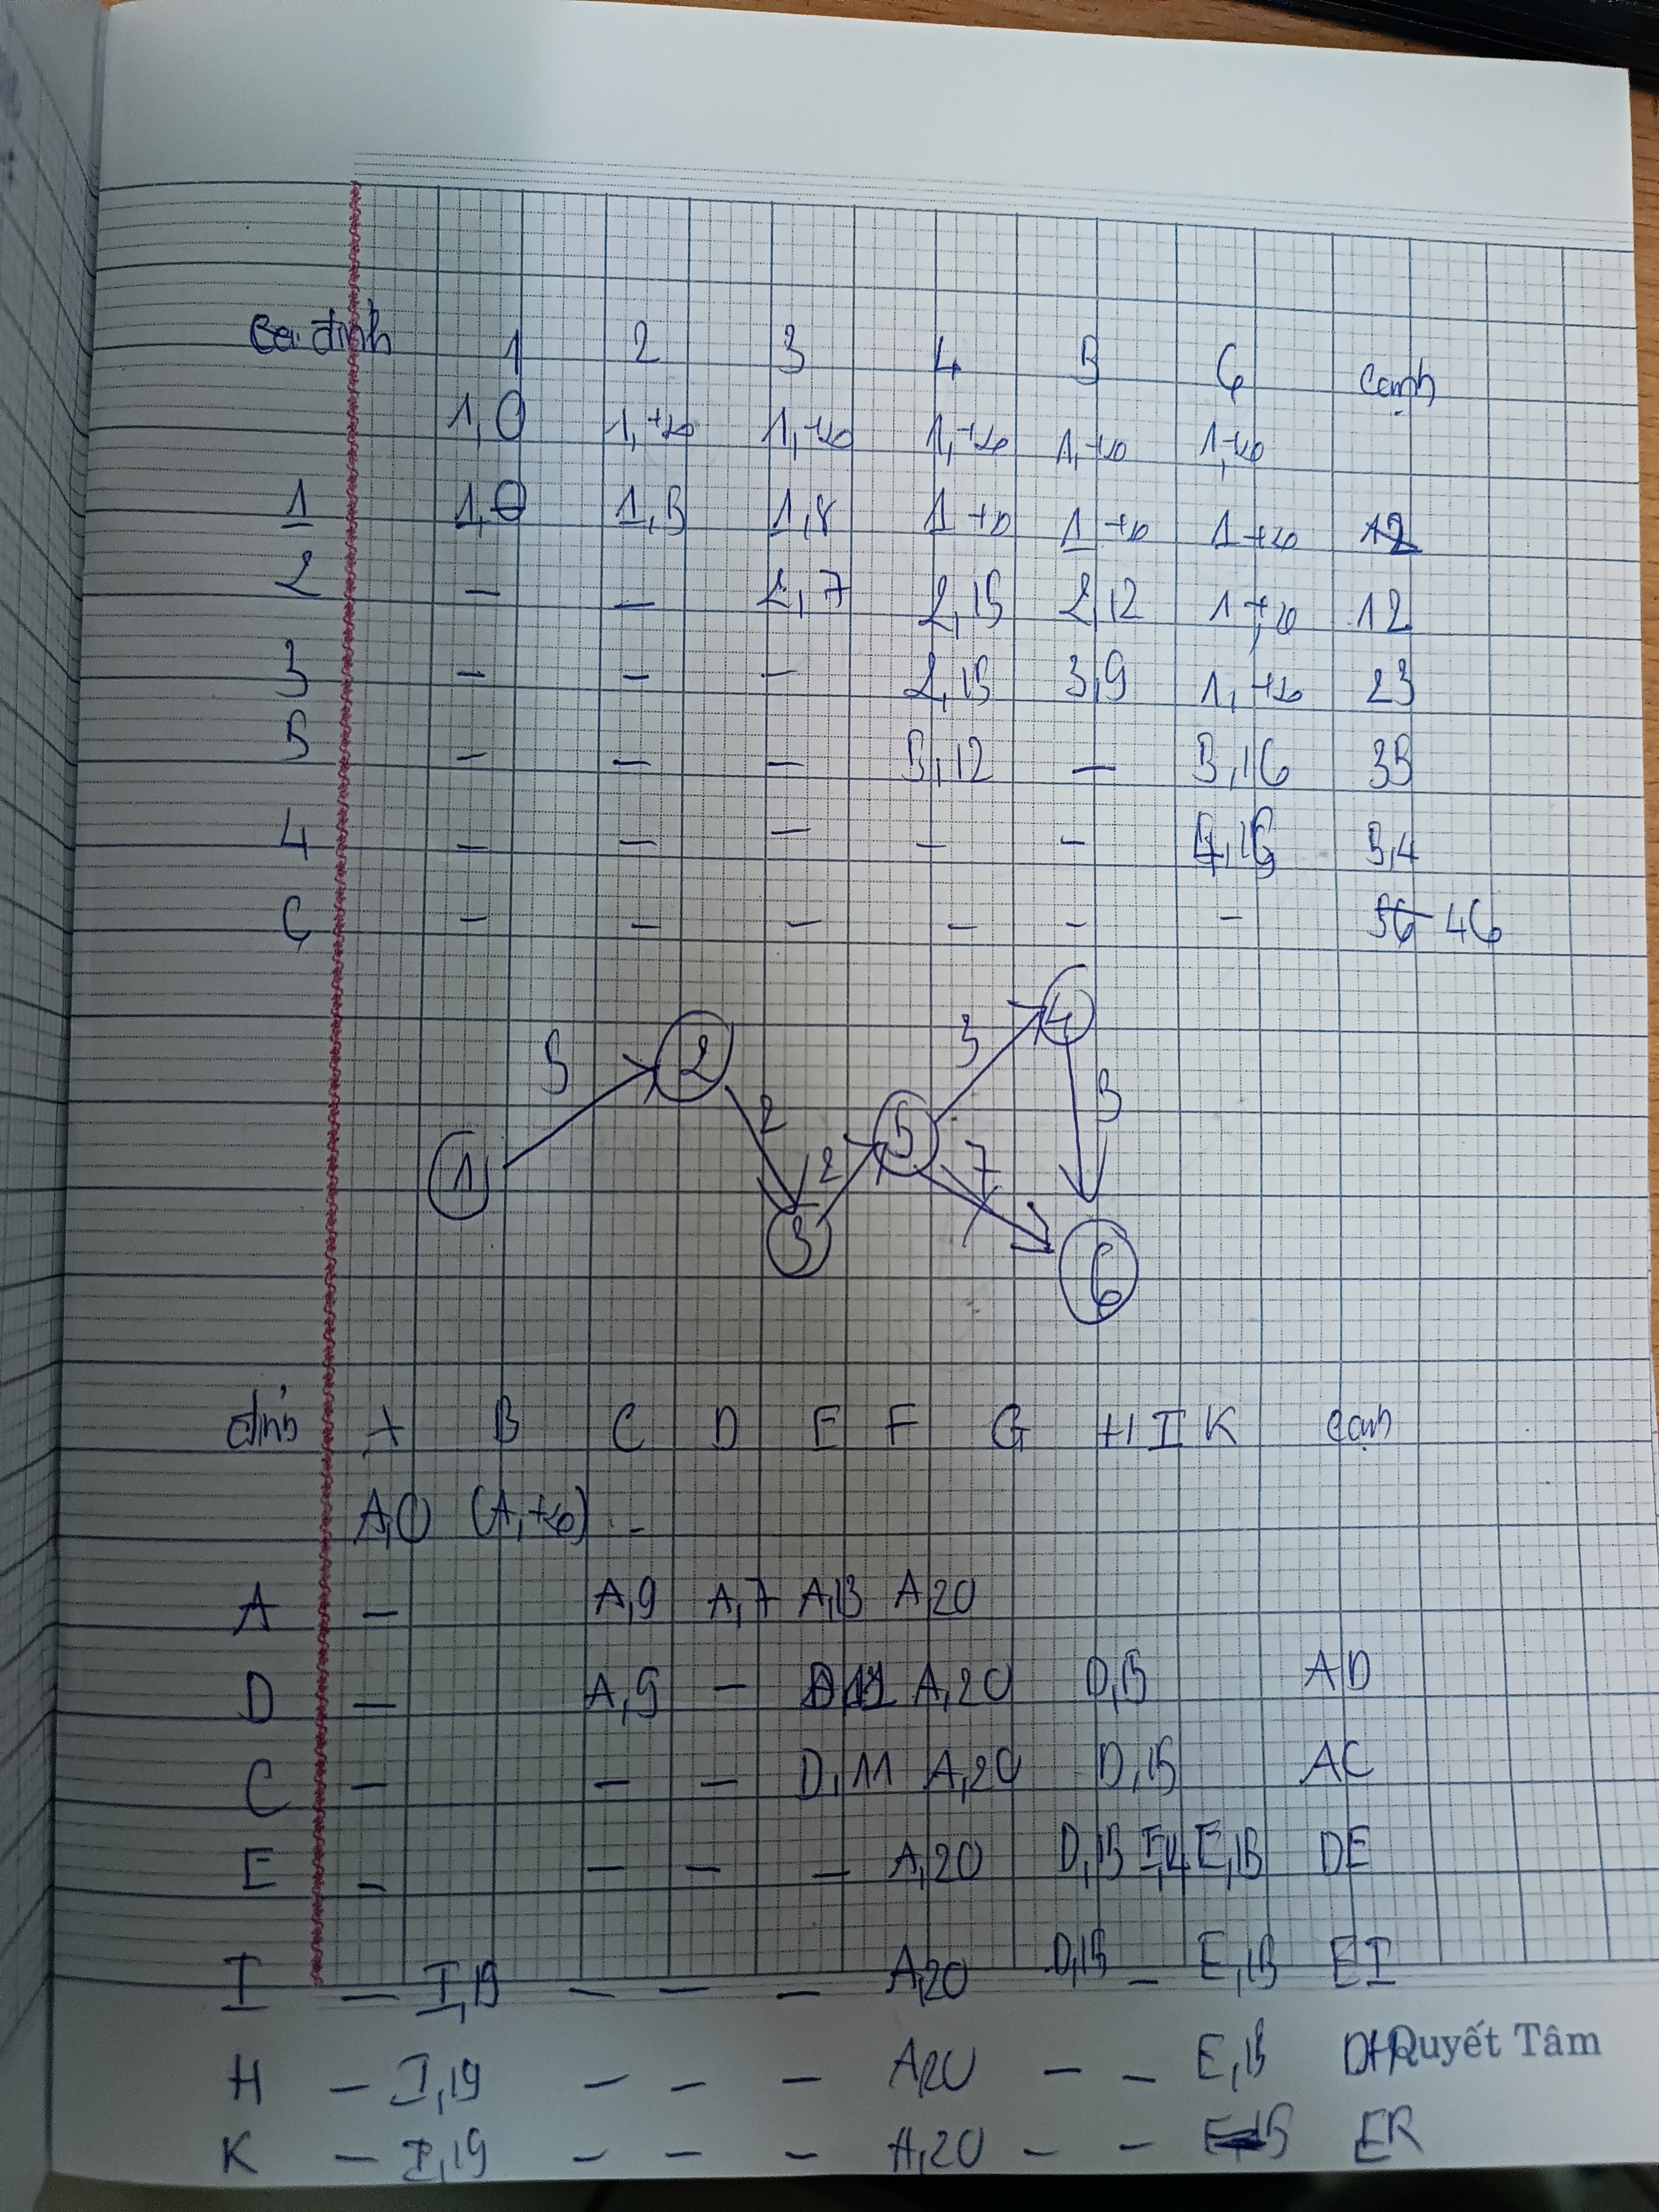 đỉnh 1 2 3 4 5 6 cạnh
1,0 1,+∞ 1,+∞ 1,+∞ 1,+∞ 1,+∞
1 1,0 1,5 1,8 1 +∞ 1 +∞ 1 +∞ 12
2 – – 2,7 2,15 2,12 1,+∞ 12
3 – – – 2,15 3,9 1,+∞ 23
5 – – – 5,12 – 5,16 35
4 – – – – – 4,15 5,4
6 – – – – – – 56 46
5 2 3 4
1 2 2 5 7 5
3 6
đỉnh A B C D E F G H I K cạnh
A,0 (A,+∞) ..
A – A,9 A,7 A,13 A,20
D – A,9 – A,20 D,15 AD
C – – – D,11 A,20 D,15 AC
E – – – – A,20 D,15 E,15 DE
I – I,19 – – – A,20 D,15 – E,15 EI
H – I,19 – – – A,20 – – E,15 DH
Quyết Tâm
K – I,19 – – – A,20 – – EK